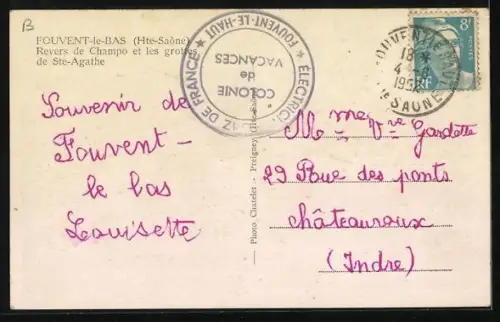 B
FOUVENT-le-BAS (Hte-Saône)
Revers de Champo et les grottes
de Ste-Agathe
Souvenir de
Fouvent-
le bas
Louisette
★ FOUVENT-LE-HAUT ★ ELECTRIC. GAZ DE FRANCE
COLONIE
de
VACANCES
Photo Chatelet - Preigney (Hte-Saône)
FOUVENT-LE-HAUT
18 *
4 -
195
Hte SAONE
8F
POSTES
RF
Mme Vve Gardette
29 Rue des ponts
châteauroux
(Indre)